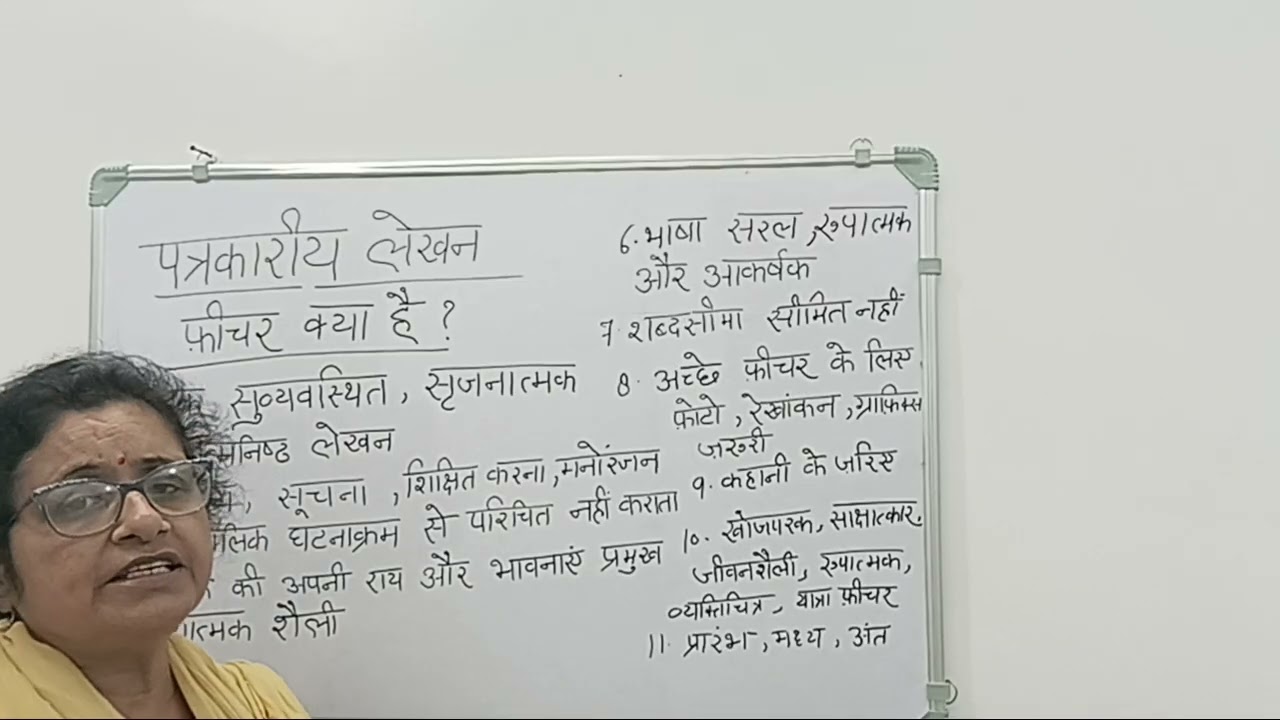 पत्रकारीय लेखन
फ़ीचर क्या है ?
सुव्यवस्थित, सृजनात्मक
लेखन
सूचना, शिक्षित करना, मनोरंजन
घटनाक्रम से परिचित नहीं कराता
की अपनी राय और भावनाएं प्रमुख
शैली
6. भाषा सरल, रूपात्मक
और आकर्षक
7. शब्दसीमा सीमित नहीं
8. अच्छे फ़ीचर के लिए
फ़ोटो, रेखांकन, ग्राफिक्स
जरुरी
9. कहानी के जरिए
10. खोजपरक, साक्षात्कार,
जीवनशैली, रुपात्मक,
व्यक्तिचित्र, यात्रा फ़ीचर
11. प्रारंभ, मध्य, अंत